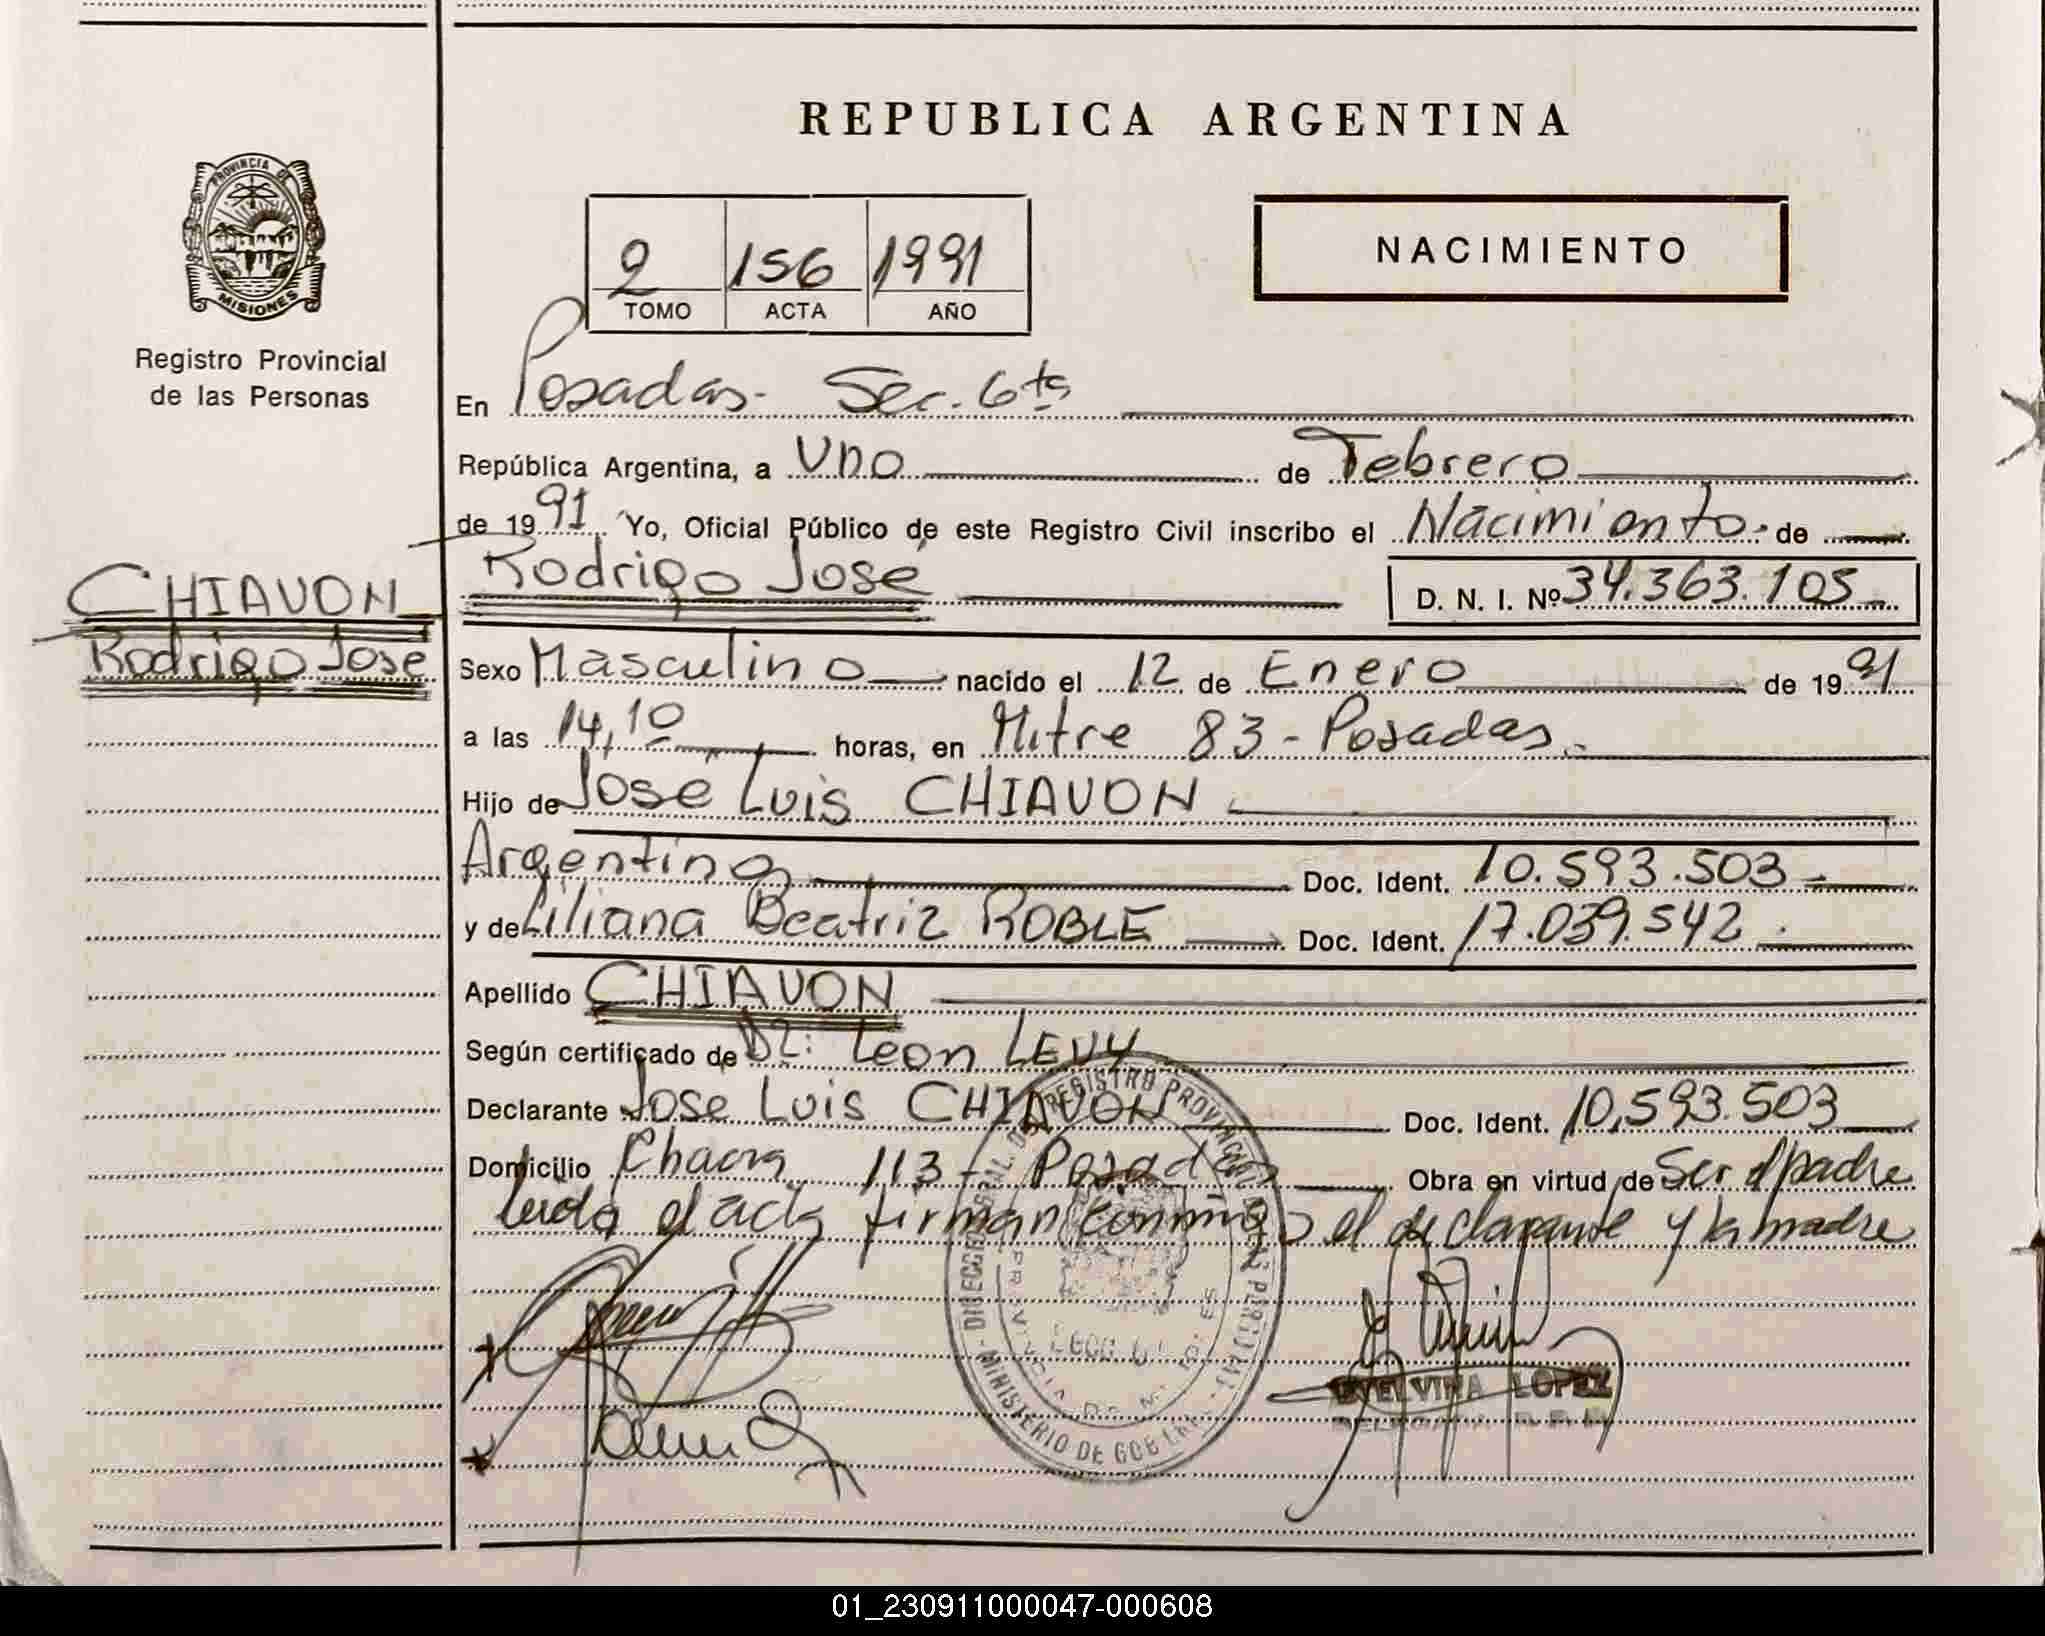 REPUBLICA ARGENTINA
PROVINCIA DE
MISIONES
Registro Provincial
de las Personas
2 156 1991
TOMO ACTA AÑO
NACIMIENTO
En Posadas- Sec. 6ta
República Argentina, a Uno de Febrero
de 1991 Yo, Oficial Público de este Registro Civil inscribo el Nacimiento.- de
CHIAVON
Rodrigo Jose
Rodrigo Jose D. N. I. Nº 34.363.105
Sexo Masculino nacido el 12 de Enero de 1991
a las 14,10 horas, en Mitre 83 - Posadas.-
Hijo de Jose Luis CHIAVON
Argentino Doc. Ident. 10.593.503.-
y de Liliana Beatriz ROBLE Doc. Ident. 17.039.542
Apellido CHIAVON
Según certificado de Dr: Leon LEVY
Declarante Jose Luis CHIAVON Doc. Ident. 10,593.503
Domicilio Chacra 113 - Posadas Obra en virtud de Ser el padre
leida el acta firman conmigo el declarante y la madre
REGISTRO PROVINCIAL DE LAS PERSONAS
MINISTERIO DE GOBIERNO
PROVINCIA DE MISIONES
LOPEZ
01_230911000047-000608